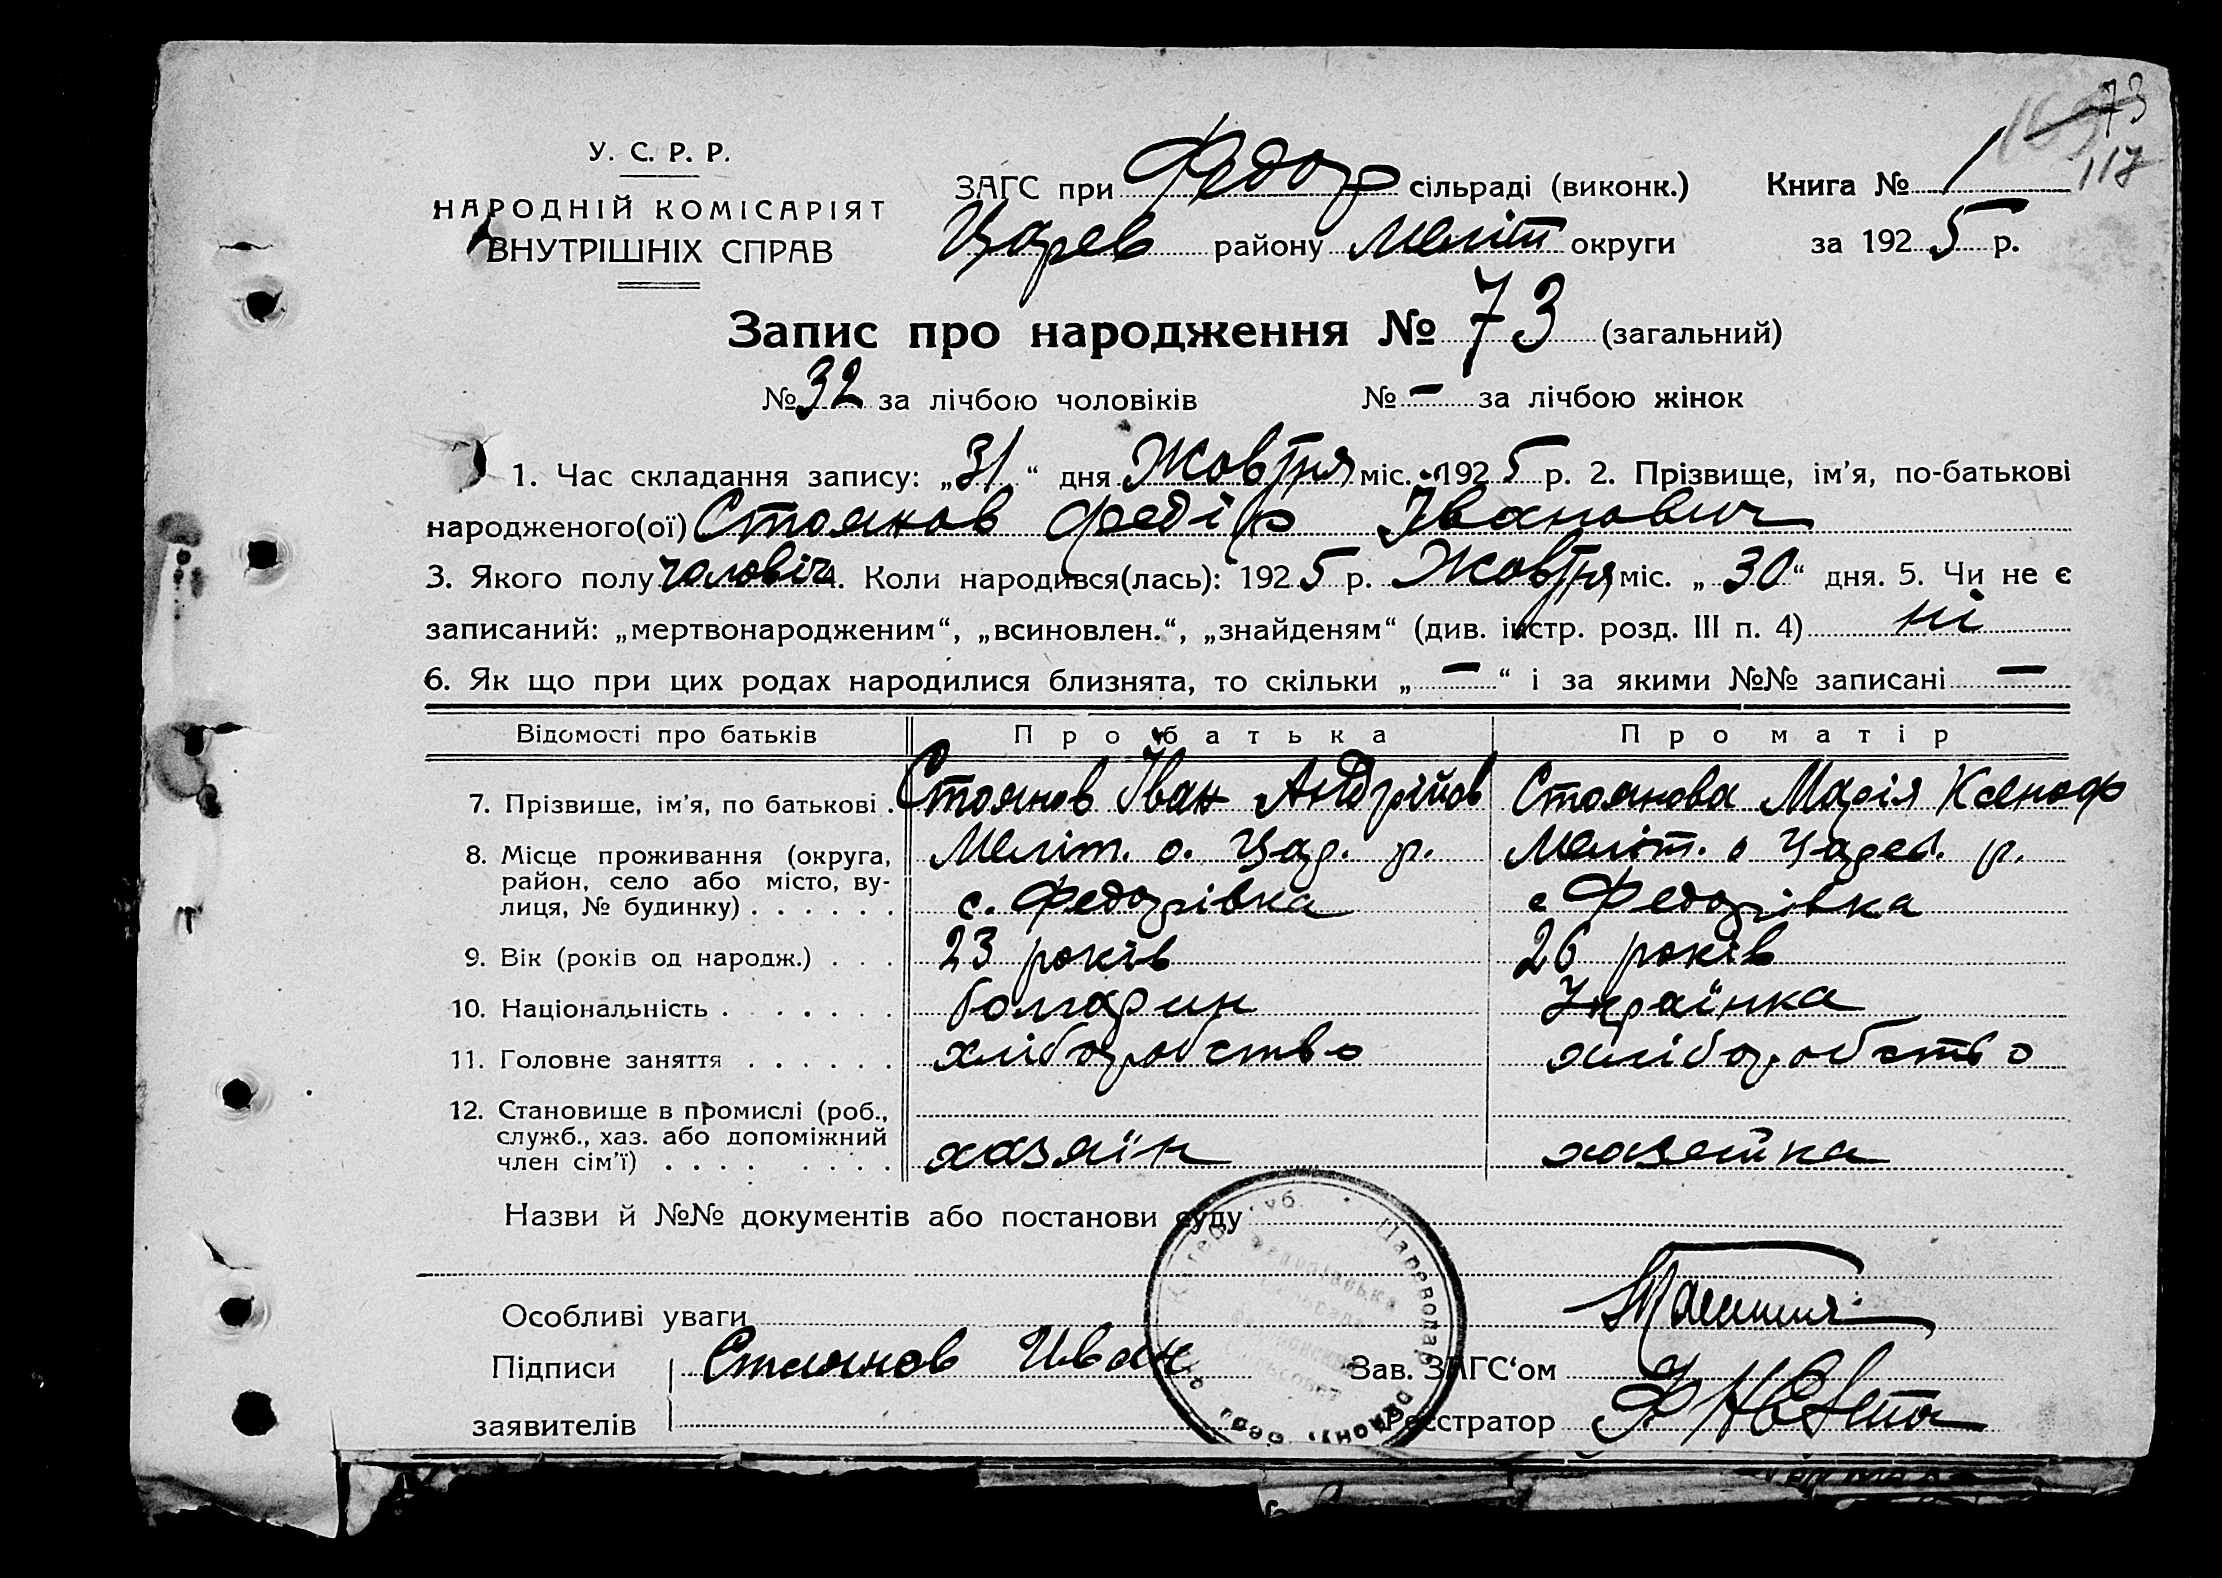 73
117
У. С. Р. Р.
НАРОДНІЙ КОМІСАРІЯТ
ВНУТРІШНІХ СПРАВ
ЗАГС при Федор сільраді (виконк.) Книга № 1
Царев району Меліт округи за 1925 р.
Запис про народження № 73 (загальний)
№ 32 за лічбою чоловіків № — за лічбою жінок
1. Час складання запису: „31“ дня Жовтня міс. 1925 р. 2. Прізвище, ім'я, по-батькові
народженого(ої) Стоянов Федір Іванович
3. Якого полу чоловіч 4. Коли народився(лась): 1925 р. Жовтня міс. „30“ дня. 5. Чи не є
записаний: „мертвонародженим“, „всиновлен.“, „знайденям“ (див. інстр. розд. III п. 4) ні
6. Як що при цих родах народилися близнята, то скільки „—“ і за якими №№ записані —
Відомості про батьків Про батька Про матір
7. Прізвище, ім'я, по батькові . Стоянов Іван Андрійов Стоянова Марія Ксеноф
8. Місце проживання (округа, Меліт. о. Цар. р. Меліт. о Царев. р.
район, село або місто, ву-
лиця, № будинку) . . . . . . с. Федорівка с Федорівка
9. Вік (років од народж.) . . . 23 років 26 років
10. Національність . . . . . . . болгарин Українка
11. Головне заняття . . . . . . хліборобство хліборобство
12. Становище в промислі (роб.,
служб., хаз. або допоміжний
член сім'ї) . . . . . . . . хазяїн хазяйка
Назви й №№ документів або постанови суду
Особливі уваги
Підписи Стоянов Иван Зав. ЗАГС‘ом
заявителів Реєстратор